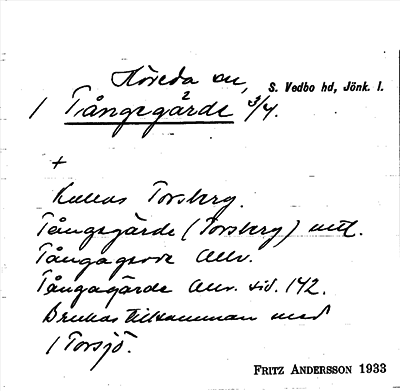 Höreda sn, S. Vedbo hd, Jönk. l.
1 Tångsgärde 3/4.
+
Kallas Torsberg.
Tångsgärde (Torsberg) mtl.
Tångagerde
Tångagärde sid. 142.
Brukas tillsamman med
1 Torsjö.
FRITZ ANDERSSON 1933